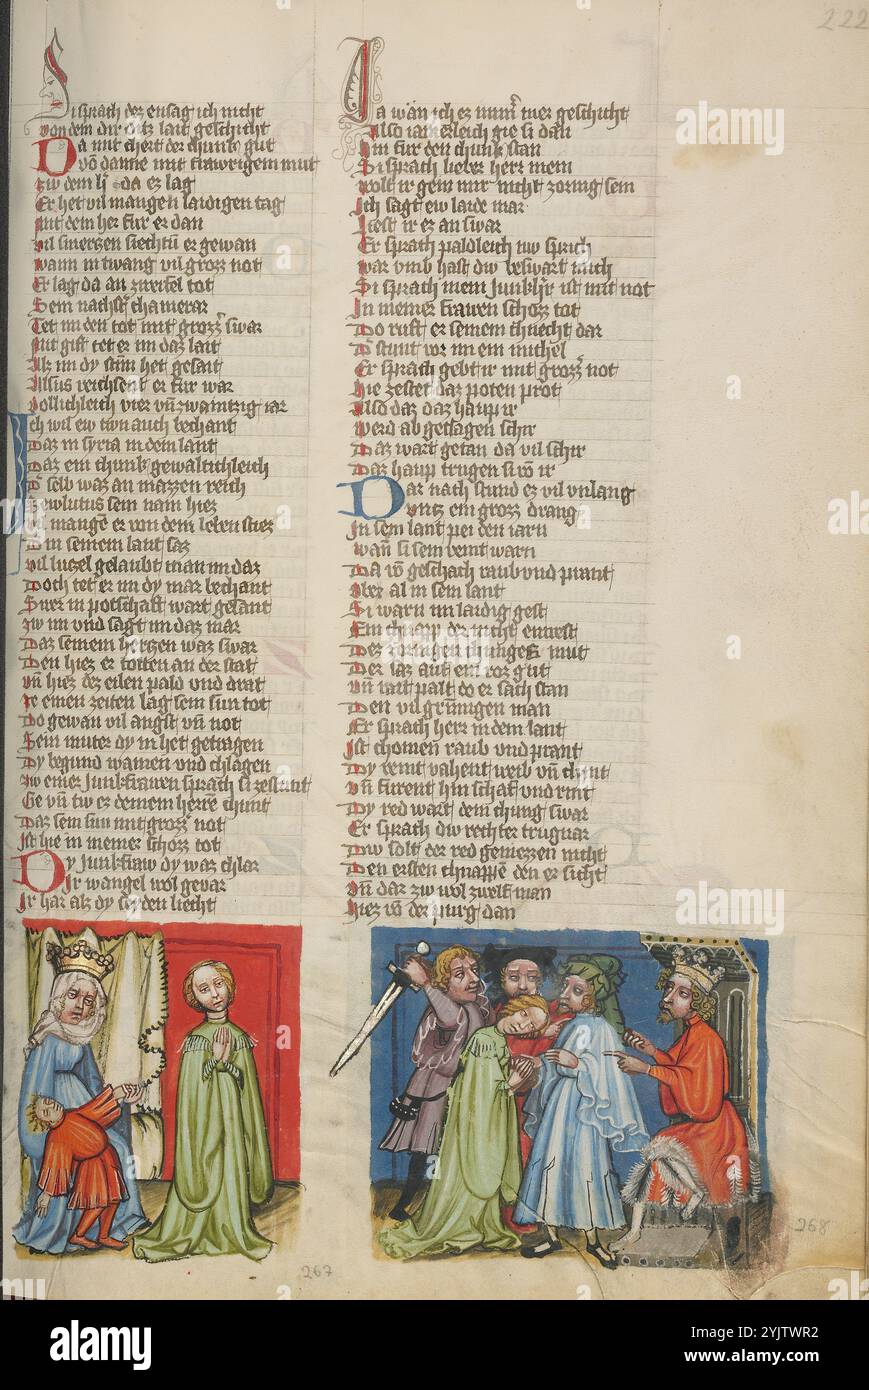 222
Si sprach des ensag ich nicht
von dem dir ditz lait geschicht
Da mit chert der chunig gut
von danne mit trawrigem mut
zw dem da ez lag
Er het vil mangen laidigen tag
mit dem her fur er dan
vil smerzen siechtu er gewan
wann in twang vil grozz not
Er lag da an zweifel tot
Sein nachst chamerar
Tet im den tot mit grozz swar
mit gift tet er im daz lait
Als im dy stim het gesait
reichsent er fur war
vollichleich vier vn zwaintzig iar
Ich wil ew nwn auch bechant
Daz in syria in dem lant
Daz ein chunk gewaltichleich
D selb waz an mazzen reich
Sewlutus sein nam hiez
vil mange er von dem leben stiez
D in seinem lant saz
vil lutzel gelaubt man im daz
Doch tet er im dy mar bechant
Swer in potschaft wart gesant
zw im vnd sagt im daz mar
Daz seinem hertzen waz swar
Den hiez er totten an der stat
vn hiez des eilen pald vnd drat
Je einen zeiten lag sein sun tot
Do gewan vil angst vn not
Sein muter dy in het getragen
Dy begund wainen vnd chlagen
zw einer Junkfrawen sprach si zestunt
Ge vn tw ez deinem herre chunt
Daz sein sun mit grozz not
Ist hie in meiner schozz tot
Dy Junkfraw dy waz chlar
Ir wangel wol gevar
Ir har alz dy seyden liecht
Ja wan ich ez nimmer geschicht
Also gie si dan
hin fur den chunk stan
Si sprach lieber herr mein
wolt ir gein mir nicht zornig sein
Ich sagt ew laide mar
ez an swar
Er sprach paldleich nw sprich
war vmb hast dw beswart mich
Si sprach mein Junkher ist mit not
In meiner frawen schozz tot
Do ruft er seinem chnecht dar
D stunt vor im ein michel
Er sprach gebt ir mit grozz not
hie zestet daz poten prot
Also daz daz haup ir
werd ab geslagen schir
Daz wart getan da vil schir
Daz haup trugen si von ir
Dar nach stund ez vil vnlang
vntz ein grozz drang
In sein lant pei den iarn
wan si sein veint warn
Da von geschach raub vnd prant
vber al in sein lant
Si warn im laidig gest
Ein chnapp der nicht enwest
Des zornigen chuniges mut
Der saz auf ein roz gut
vn rait palt do er sach stan
Den vil grimigen man
Er sprach herr in dem lant
Ist chomen raub vnd prant
Dy veint vahent weib vn chint
vn furent hin schaf vnd rint
Dy red wart dem chung swar
Er sprach dw rechter trugnar
Dw solt der red geniezzen nicht
Den ersten chnappe den er sicht
vn dar zw wol zwelf man
hiez von der purg dan
267
268
alamy
Image ID: 2YJTWR2
www.alamy.com